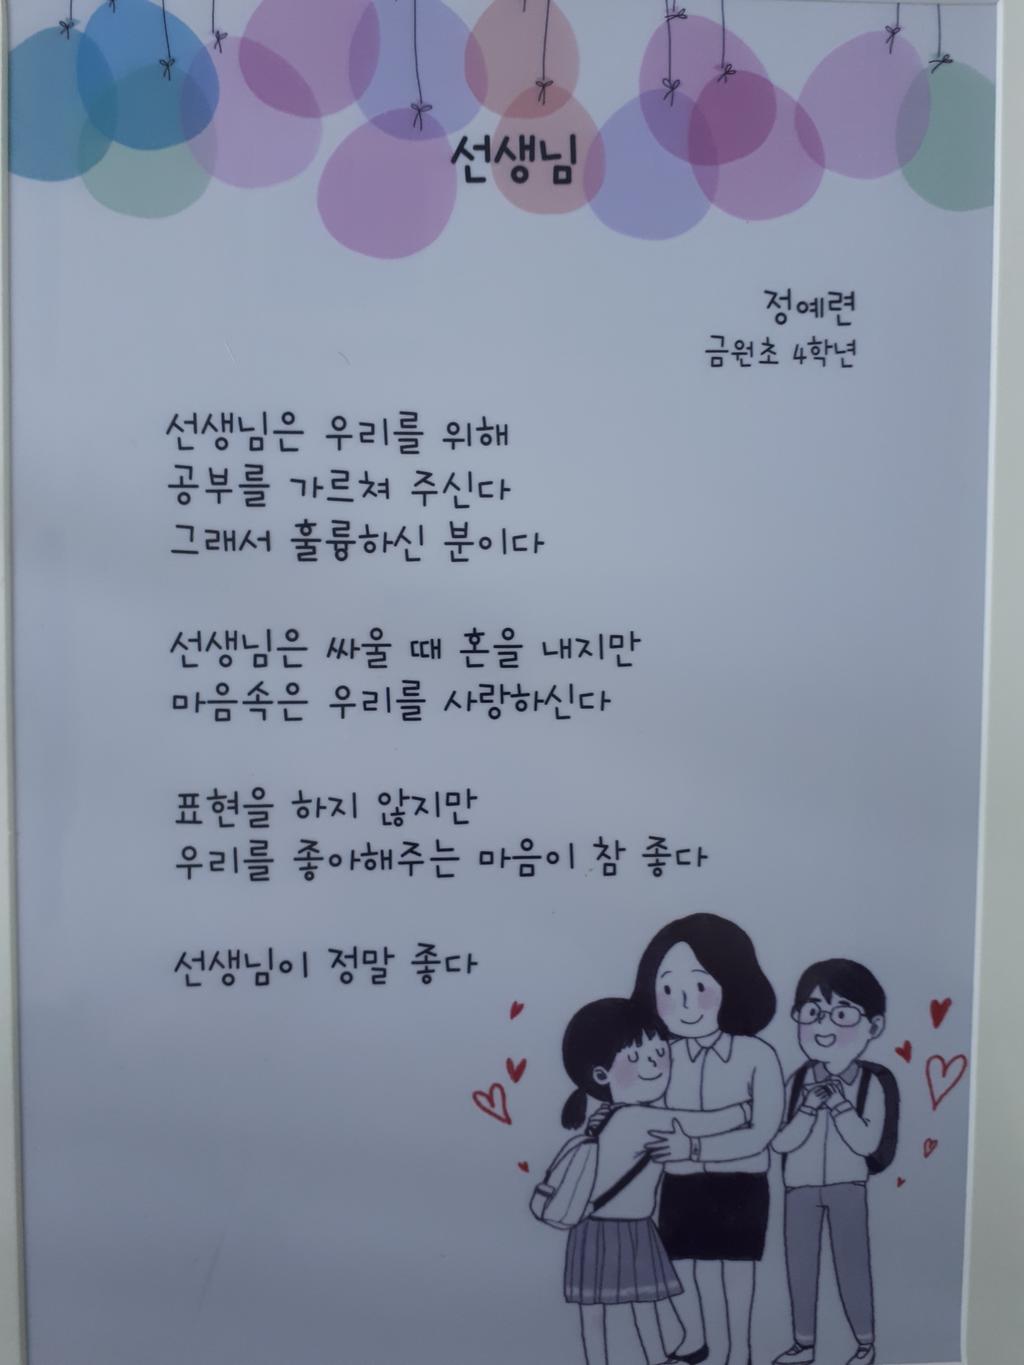 선생님
정예련
금원초 4학년
선생님은 우리를 위해
공부를 가르쳐 주신다
그래서 훌륭하신 분이다
선생님은 싸울 때 혼을 내지만
마음속은 우리를 사랑하신다
표현을 하지 않지만
우리를 좋아해주는 마음이 참 좋다
선생님이 정말 좋다